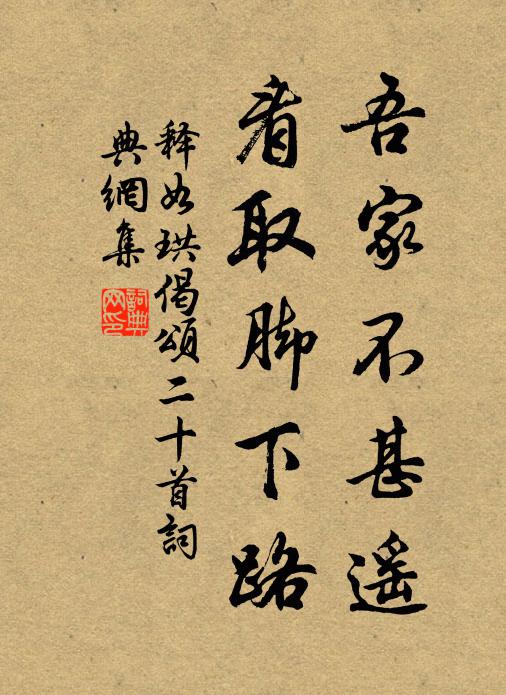 吾家不甚遥
看取脚下路
释如珙偈頌二十首詞
典網集
詞典網印